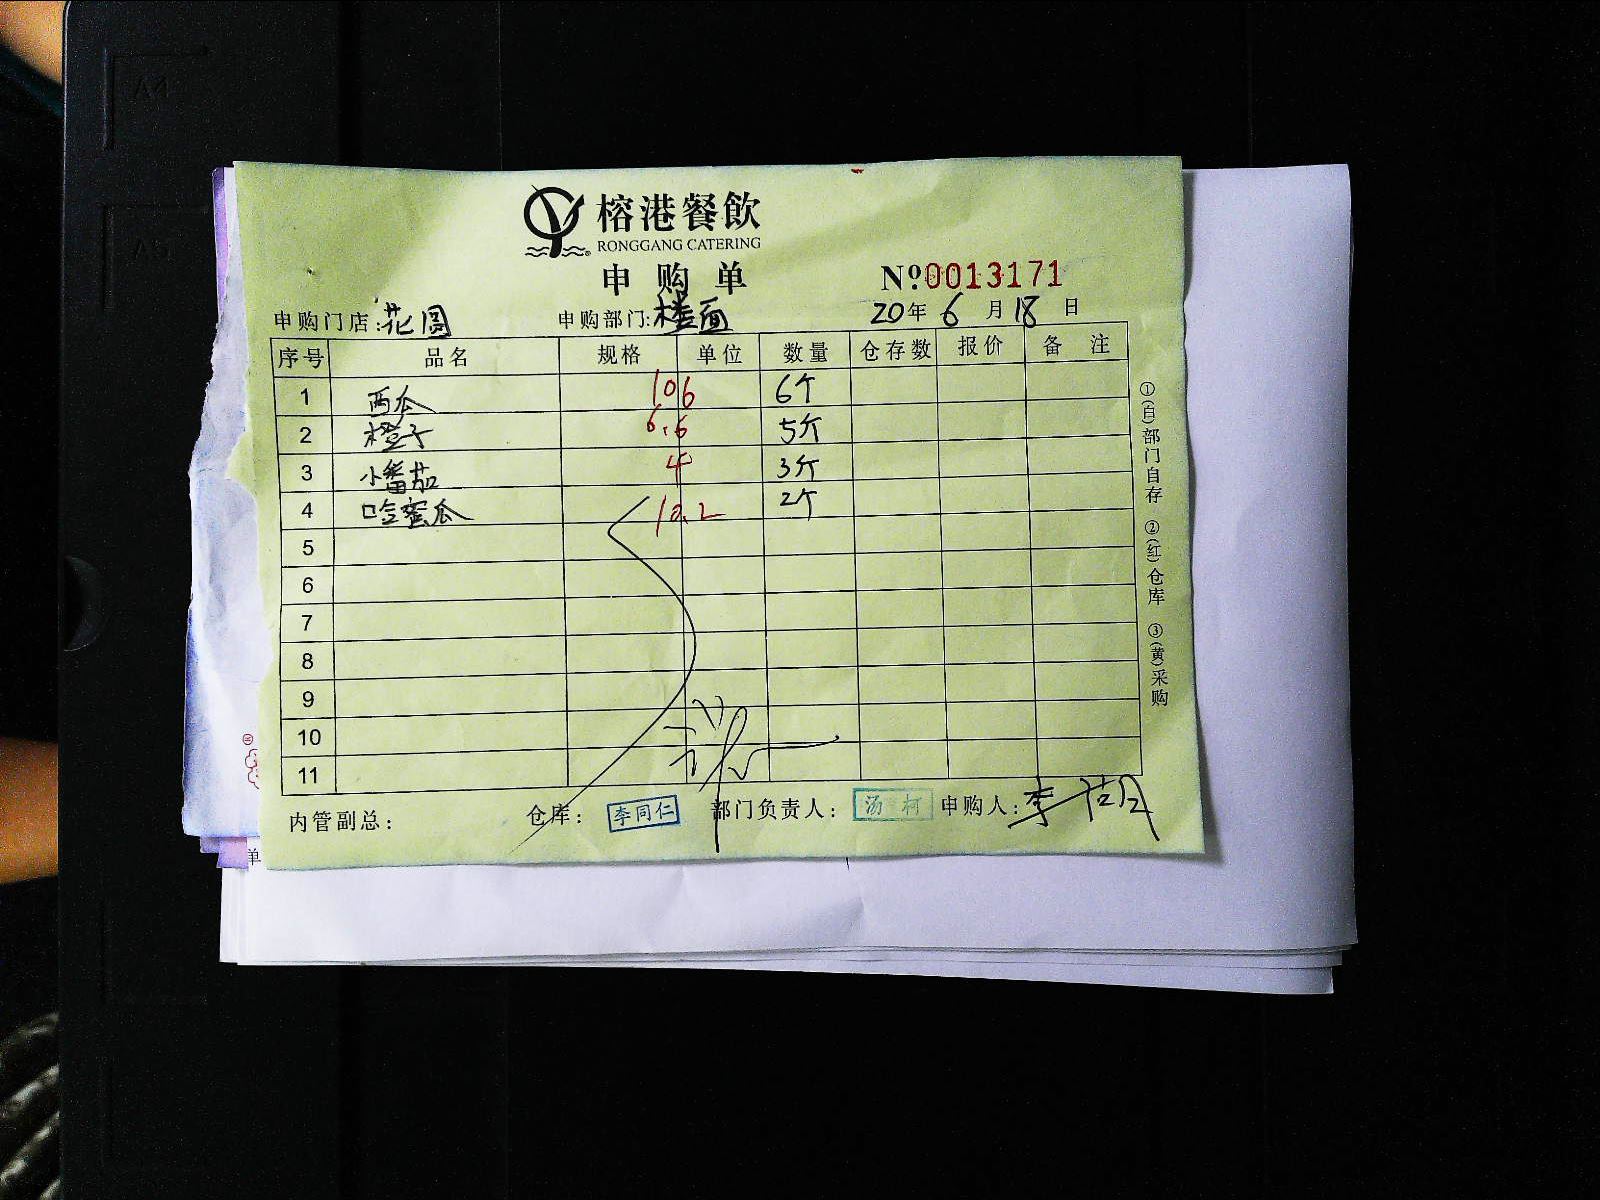 榕港餐飲
RONGGANG CATERING
申购单
№:0013171
申购门店:花园 申购部门:楼面 20年6月18日
序号 品名 规格 单位 数量 仓存数 报价 备注
1 西瓜 106 6个
2 橙子 6.6 5斤
3 小番茄 4 3斤
4 哈蜜瓜 10.2 2个
5
6
7
8
9
10
11
内管副总: 仓库: 李同仁 部门负责人: 汤柯 申购人:
①(白)部门自存 ②(红)仓库 ③(黄)采购
单
A4
A5